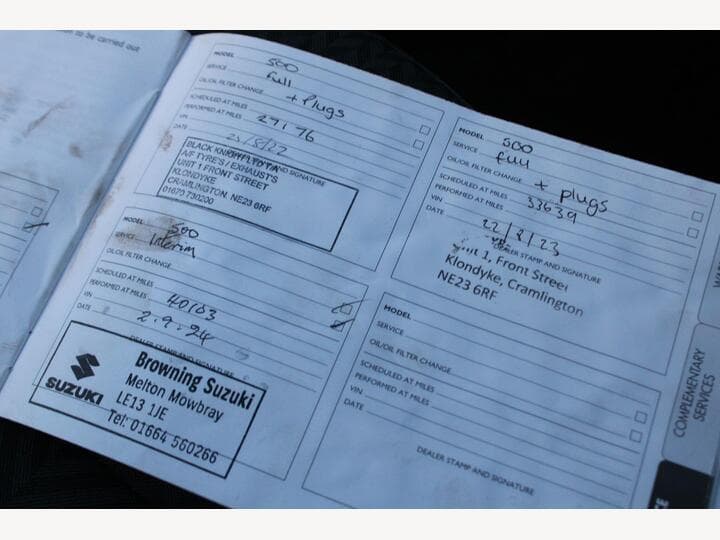 on to be carried out
MODEL 500
SERVICE Full
OIL/OIL FILTER CHANGE + Plugs
SCHEDULED AT MILES
PERFORMED AT MILES 29176
VIN
DATE 23/8/22
DEALER STAMP AND SIGNATURE
A/F TYRE'S / EXHAUST'S
UNIT 1 FRONT STREET
KLONDYKE
CRAMLINGTON. NE23 6RF
01670 730200
MODEL 500
SERVICE Interim
OIL/OIL FILTER CHANGE
SCHEDULED AT MILES
PERFORMED AT MILES 40103
VIN
DATE 2.9.24
DEALER STAMP AND SIGNATURE
SUZUKI
Browning Suzuki
Melton Mowbray
LE13 1JE
Tel: 01664 560266
MODEL 500
SERVICE full
OIL/OIL FILTER CHANGE + plugs
SCHEDULED AT MILES
PERFORMED AT MILES 33639
VIN
DATE 22/8/23
DEALER STAMP AND SIGNATURE
Unit 1, Front Street
Klondyke, Cramlington
NE23 6RF
MODEL
SERVICE
OIL/OIL FILTER CHANGE
SCHEDULED AT MILES
PERFORMED AT MILES
VIN
DATE
DEALER STAMP AND SIGNATURE
COMPLEMENTARY
SERVICES